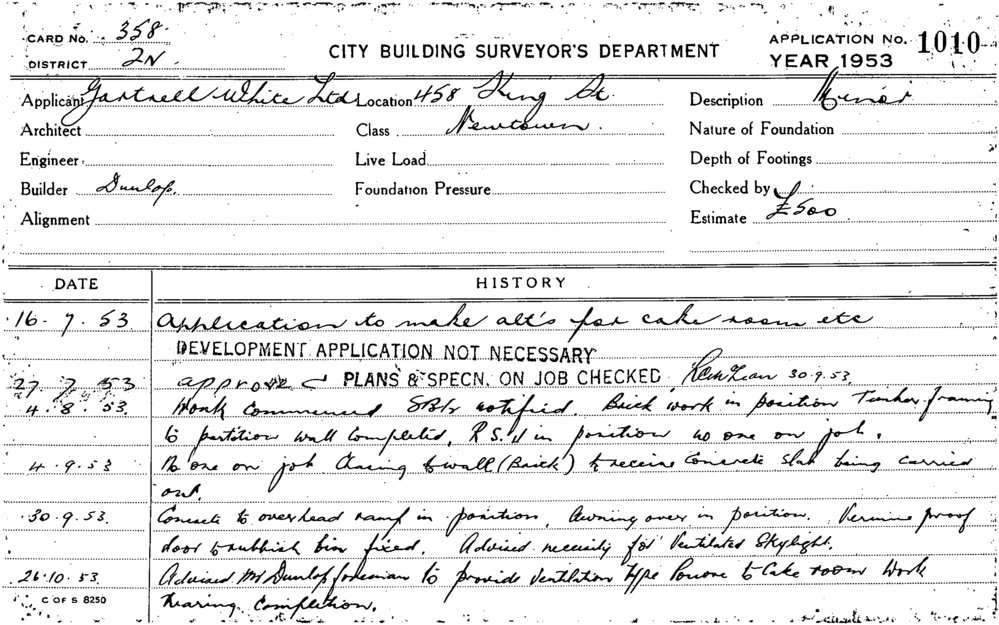 CARD No. 358
DISTRICT 2N
CITY BUILDING SURVEYOR'S DEPARTMENT
APPLICATION No. 1010
YEAR 1953
Applicant Gartnell White Ltd Location 458 King St. Description Minor
Architect Class Newtown. Nature of Foundation
Engineer Live Load Depth of Footings
Builder Dunlop. Foundation Pressure Checked by
Alignment Estimate £500
DATE HISTORY
16. 7. 53 Application to make alt's for cake room etc
DEVELOPMENT APPLICATION NOT NECESSARY
27. 7. 53 approved PLANS & SPECN. ON JOB CHECKED 30.9.53.
4. 8. 53. Work Commenced notified. Brick work in position Timber framing
to partition wall Completed, R.S.J in position no one on job.
4. 9. 53 No one on job Chasing to wall (Brick) to receive Concrete slab being carried
out.
30. 9. 53. Concrete to overhead ramp in position, Awning over in position. Vermin proof
door to rubbish bin fixed. Advised necessity for Ventilated Skylight.
26. 10. 53 Advised Mr Dunlop foreman to provide Ventilation type to Cake room Work
nearing Completion.
C OF S 8250